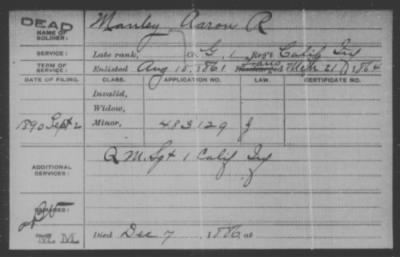 DEAD
NAME OF SOLDIER: Manley Aaron R
SERVICE: Late rank, Co. G, 1 Reg't Calif Inf
TERM OF SERVICE: Enlisted Aug 15, 1861 Discharged Mch 21, 1864
DATE OF FILING. CLASS. APPLICATION NO. LAW. CERTIFICATE NO.
Invalid,
Widow,
1890 Sept 2 Minor, 483129
ADDITIONAL SERVICES: Q M. Sgt 1 Calif Inf
REMARKS:
M. M. Died Dec 7, 1880, at